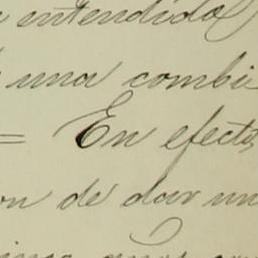 entendido
una combi
= En efecto
on de dar un